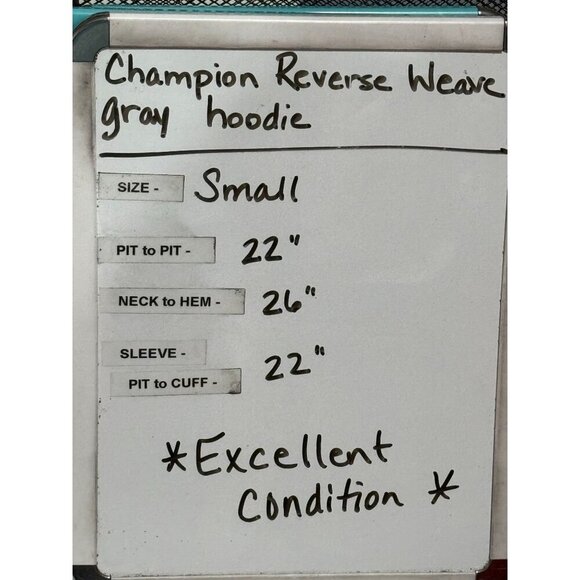 Champion Reverse Weave
gray hoodie
SIZE - Small
PIT to PIT - 22"
NECK to HEM - 26"
SLEEVE -
PIT to CUFF - 22"
*Excellent
Condition *